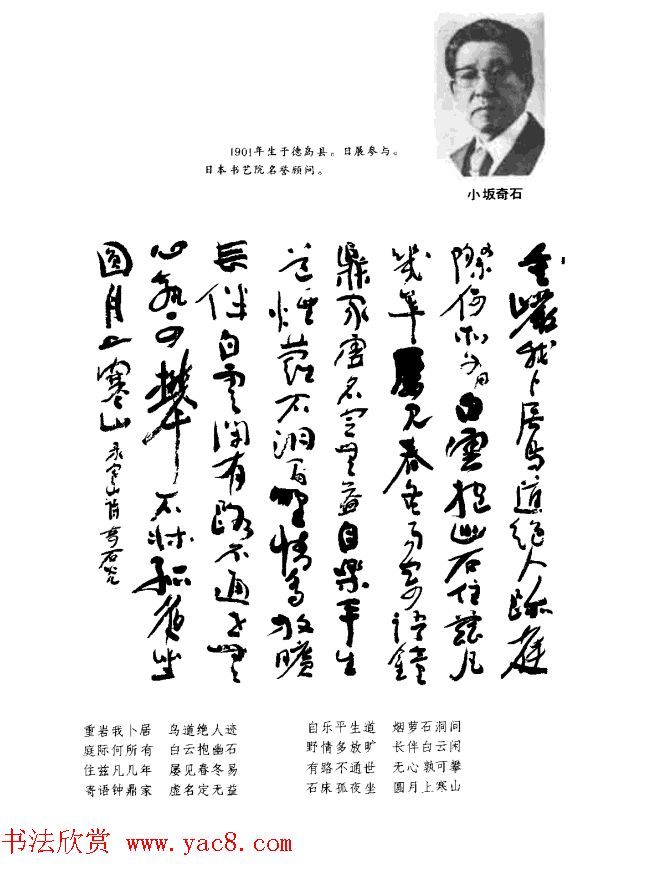 1901年生于德岛县。日展参与。
日本书艺院名誉顾问。
小坂奇石
重岩我卜居鸟道绝人迹庭
际何所有白雲抱幽石住兹凡
几年屡见春冬易寄语钟
鼎家虚名定无益自樂平生
道烟萝石洞间野情多放曠
長伴白雲闲有路不通世無
心孰可攀石床孤夜坐
圆月上寒山
重岩我卜居 鸟道绝人迹
庭际何所有 白云抱幽石
住兹凡几年 屡见春冬易
寄语钟鼎家 虚名定无益
自乐平生道 烟萝石洞间
野情多放旷 长伴白云闲
有路不通世 无心孰可攀
石床孤夜坐 圆月上寒山
书法欣赏 www.yac8.com